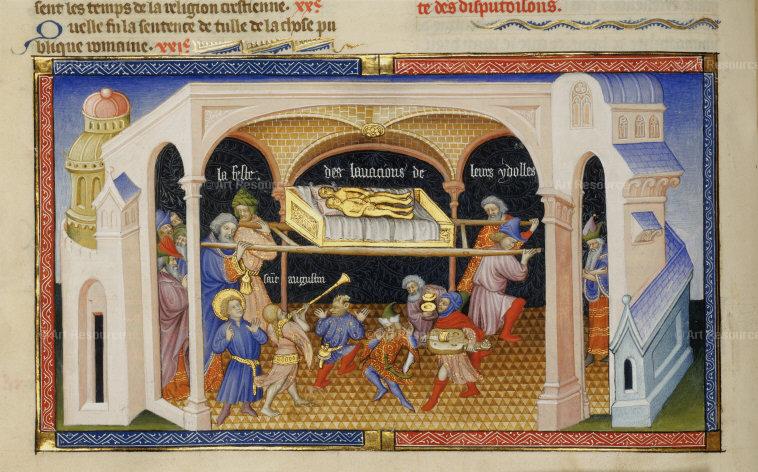 sent les temps de la religion crestienne. xx.e
Quelle fu la sentence de tulle de la chose pu
blique romaine. xxi.e
te des disputoisons.
la feste des lauacions de leurs ydolles
sait augustin